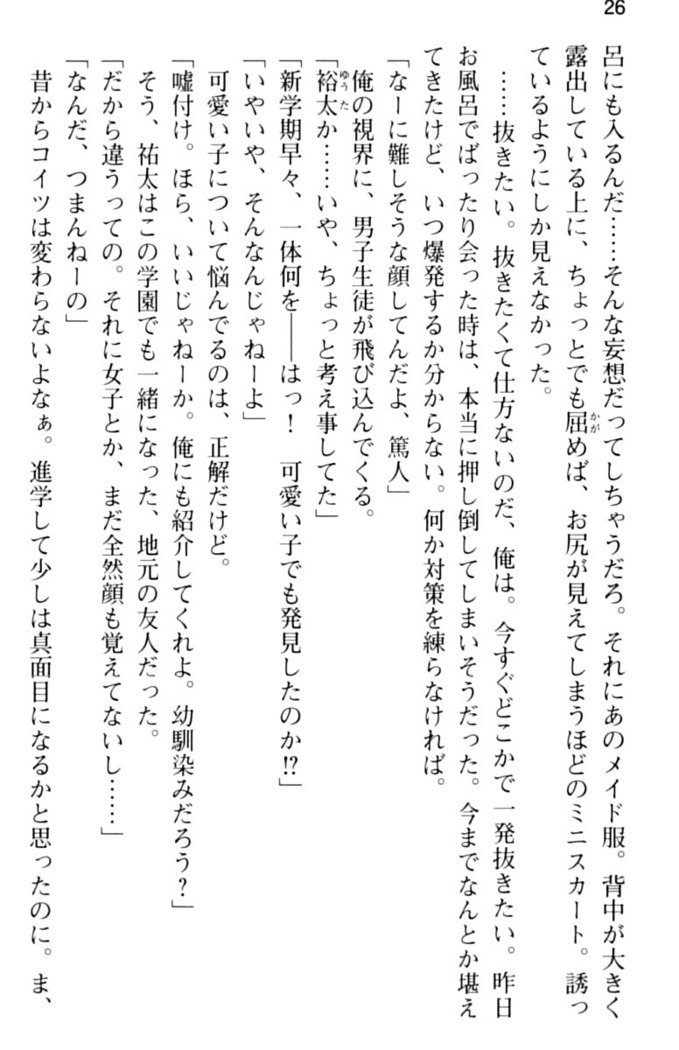 26
呂にも入るんだ……そんな妄想だってしちゃうだろ。それにあのメイド服。背中が大きく
露出している上に、ちょっとでも屈めば、お尻が見えてしまうほどのミニスカート。誘っ
かが
ているようにしか見えなかった。
……抜きたい。抜きたくて仕方ないのだ、俺は。今すぐどこかで一発抜きたい。昨日
お風呂でばったり会った時は、本当に押し倒してしまいそうだった。今までなんとか堪え
てきたけど、いつ爆発するか分からない。何か対策を練らなければ。
「なーに難しそうな顔してんだよ、篤人」
俺の視界に、男子生徒が飛び込んでくる。
「裕太か……いや、ちょっと考え事してた」
ゆうた
「新学期早々、一体何を――はっ！　可愛い子でも発見したのか!?」
「いやいや、そんなんじゃねーよ」
可愛い子について悩んでるのは、正解だけど。
「嘘付け。ほら、いいじゃねーか。俺にも紹介してくれよ。幼馴染みだろう？」
そう、祐太はこの学園でも一緒になった、地元の友人だった。
「だから違うっての。それに女子とか、まだ全然顔も覚えてないし……」
「なんだ、つまんねーの」
昔からコイツは変わらないよなぁ。進学して少しは真面目になるかと思ったのに。ま、